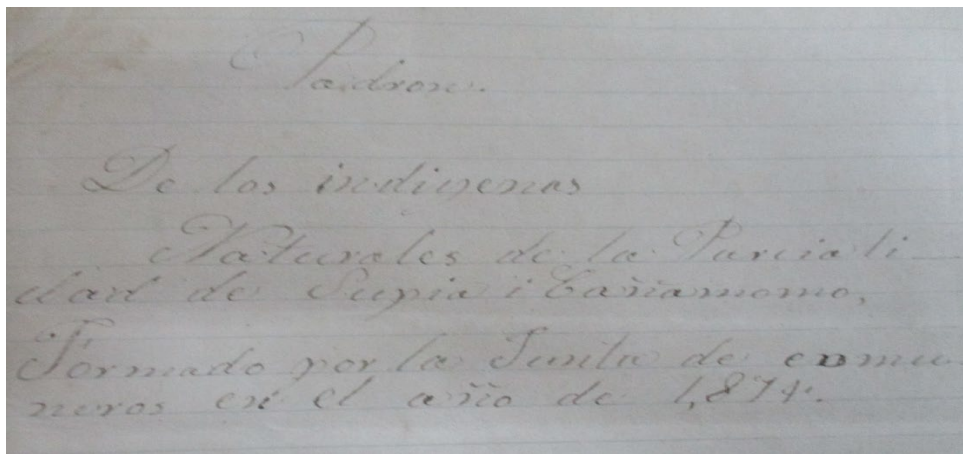 Padron.
De los indigenas
Naturales de la Parciali
dad de Supia i Cañamomo,
Formado por la Junta de comu
neros en el año de 1,874.